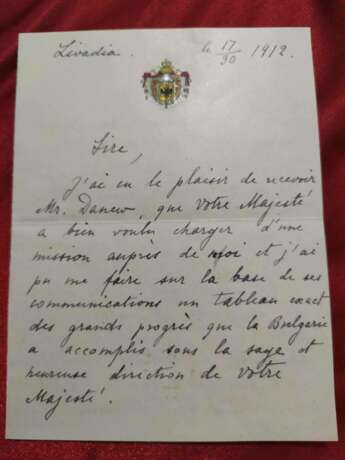 Livadia.
le 17/30 1912.
Sire,
J'ai eu le plaisir de recevoir
Mr. Danew, que Votre Majesté
a bien voulu charger d'une
mission auprès de moi et j'ai
pu me faire sur la base de ses
communications un tableau exact
des grands progrès que la Bulgarie
a accomplis sous la sage et
heureuse direction de Votre
Majesté.